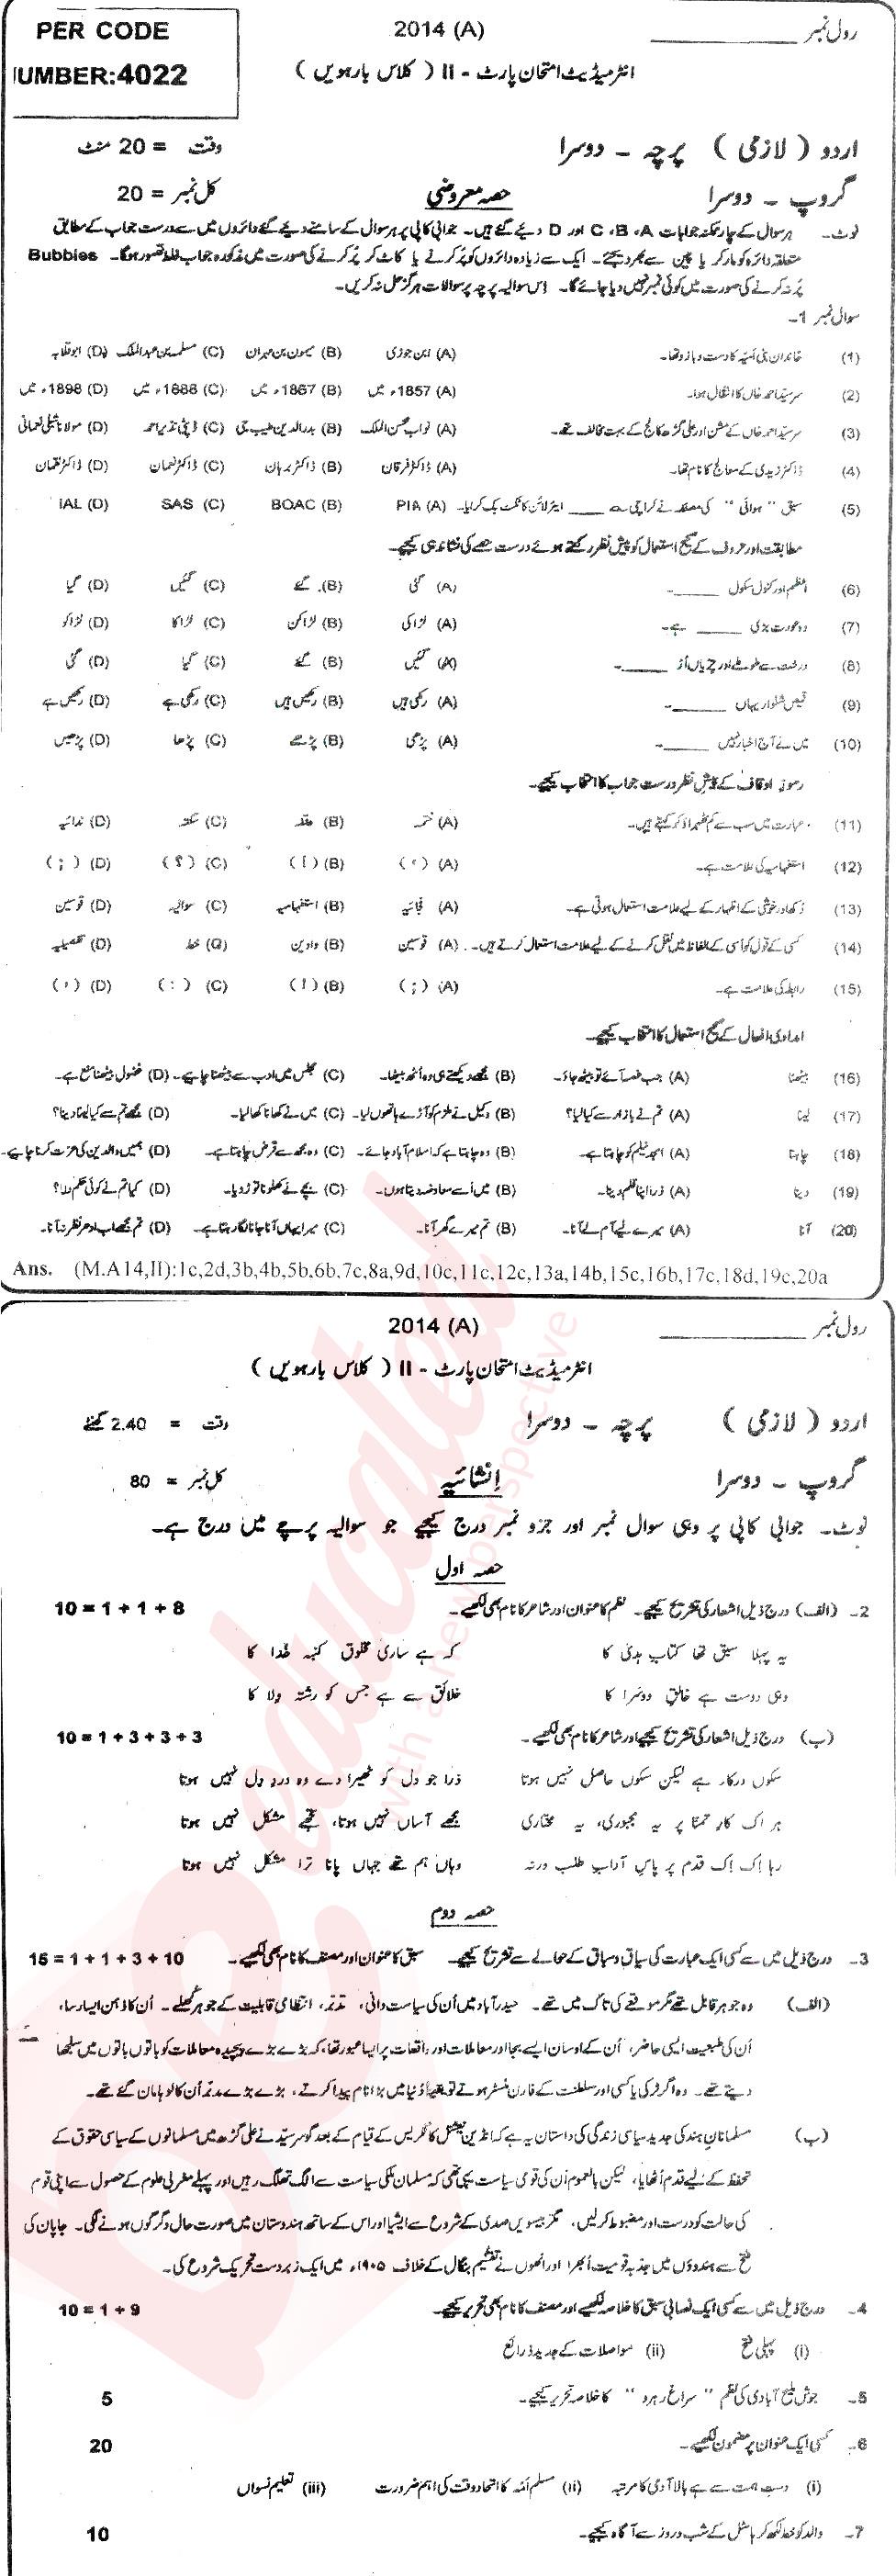 PER CODE
NUMBER:4022
2014 (A)
رول نمبر ____________
انٹرمیڈیٹ امتحان پارٹ - II ( کلاس بارہویں )
اردو ( لازمی ) پرچہ - دوسرا
وقت = 20 منٹ
گروپ - دوسرا
حصہ معروضی
کل نمبر = 20
نوٹ۔ ہر سوال کے چار ممکنہ جوابات A، B، C اور D دیے گئے ہیں۔ جوابی کاپی پر ہر سوال کے سامنے دیے گئے دائروں میں سے درست جواب کے مطابق
متعلقہ دائرہ کو مارکر یا پین سے بھر دیجئے۔ ایک سے زیادہ دائروں کو پُر کرنے یا کاٹ کر پُر کرنے کی صورت میں مذکورہ جواب غلط تصور ہوگا۔ Bubbles
پُر نہ کرنے کی صورت میں کوئی نمبر نہیں دیا جائے گا۔ اس سوالیہ پرچہ پر سوالات ہرگز حل نہ کریں۔
سوال نمبر 1۔
(1) خاندان بنی اُمیہ کا دست و بازو تھا۔ (A) ابن جوزی (B) میمون بن مہران (C) مسلمہ بن عبدالملک (D) ابو قلابہ
(2) سرسید احمد خاں کا انتقال ہوا۔ (A) 1857ء میں (B) 1867ء میں (C) 1888ء میں (D) 1898ء میں
(3) سرسید احمد خاں کے مشن اور علی گڑھ کالج کے بہت مخالف تھے۔ (A) نواب محسن الملک (B) بدرالدین طیب جی (C) ڈپٹی نذیر احمد (D) مولانا شبلی نعمانی
(4) ڈاکٹر زیدی کے معالج کا نام تھا۔ (A) ڈاکٹر فرقان (B) ڈاکٹر برہان (C) ڈاکٹر نعمان (D) ڈاکٹر لقمان
(5) سبق " ہوائی " کی مصنفہ نے کراچی سے ____ ایئر لائن کا ٹکٹ بک کرایا۔ (A) PIA (B) BOAC (C) SAS (D) IAL
مطابقت اور حروف کے صحیح استعمال کو پیش نظر رکھتے ہوئے درست حصے کی نشاندہی کیجیے۔
(6) اعظم اور کنول سکول ____۔ (A) گئی (B) گئے (C) گئیں (D) گیا
(7) وہ عورت بڑی ____ ہے۔ (A) لڑاکی (B) لڑاکن (C) لڑاکا (D) لڑاکو
(8) درخت سے طوطے اور چڑیاں اُڑ ____۔ (A) گئیں (B) گئے (C) گیا (D) گئی
(9) قمیص شلوار یہاں ____۔ (A) رکھی ہیں (B) رکھیں ہیں (C) رکھی ہے (D) رکھیں ہے
(10) میں نے آج اخبار نہیں ____۔ (A) پڑھی (B) پڑھے (C) پڑھا (D) پڑھیں
رموز اوقاف کے پیش نظر درست جواب کا انتخاب کیجیے۔
(11) عبارت میں سب سے کم ٹھہراؤ کو کہتے ہیں۔ (A) ختمہ (B) وقفہ (C) سکتہ (D) ندائیہ
(12) استفہامیہ کی علامت ہے۔ (A) (،) (B) (!) (C) (؟) (D) (؛)
(13) دُکھ اور خوشی کے اظہار کے لیے علامت استعمال ہوتی ہے۔ (A) فجائیہ (B) استفہامیہ (C) سوالیہ (D) قوسین
(14) کسی کے قول کو اُسی کے الفاظ میں نقل کرنے کے لیے علامت استعمال کرتے ہیں۔ (A) قوسین (B) واوین (C) خط (D) تفصیلیہ
(15) رابطہ کی علامت ہے۔ (A) (؛) (B) (!) (C) (:) (D) (،)
امدادی افعال کے صحیح استعمال کا انتخاب کیجیے۔
(16) بیٹھنا (A) جب غصہ آئے تو بیٹھ جاؤ۔ (B) مجھے دیکھتے ہی وہ اُٹھ بیٹھا۔ (C) مجلس میں ادب سے بیٹھنا چاہیے۔ (D) فضول بیٹھنا منع ہے۔
(17) لینا (A) تم نے بازار سے کیا لیا؟ (B) وکیل نے ملزم کو آڑے ہاتھوں لیا۔ (C) میں نے کھانا کھا لیا۔ (D) مجھے تم سے کیا لینا دینا؟
(18) چاہنا (A) امجد نیلم کو چاہتا ہے۔ (B) وہ چاہتا ہے کہ اسلام آباد جائے۔ (C) وہ مجھ سے قرض چاہتا ہے۔ (D) ہمیں والدین کی عزت کرنا چاہیے۔
(19) دینا (A) ذرا اپنا قلم دینا۔ (B) میں اُسے معاوضہ دیتا ہوں۔ (C) بچے نے کھلونا توڑ دیا۔ (D) کیا تم نے کوئی حکم دیا؟
(20) آنا (A) میرے لیے آم لے آنا۔ (B) تم میرے گھر آنا۔ (C) میرا یہاں آنا جانا لگا رہتا ہے۔ (D) تم مجھے اب ادھر نظر نہ آنا۔
Ans. (M.A14,II):1c,2d,3b,4b,5b,6b,7c,8a,9d,10c,11c,12c,13a,14b,15c,16b,17c,18d,19c,20a
2014 (A)
رول نمبر ____________
انٹرمیڈیٹ امتحان پارٹ - II ( کلاس بارہویں )
اردو ( لازمی ) پرچہ - دوسرا
وقت = 2.40 گھنٹے
گروپ - دوسرا
اِنشائیہ
کل نمبر = 80
نوٹ۔ جوابی کاپی پر وہی سوال نمبر اور جزو نمبر درج کیجیے جو سوالیہ پرچے میں درج ہے۔
حصہ اول
2۔ (الف) درج ذیل اشعار کی تشریح کیجیے۔ نظم کا عنوان اور شاعر کا نام بھی لکھیے۔ 10 = 1 + 1 + 8
یہ پہلا سبق تھا کتاب ہدیٰ کا کہ ہے ساری مخلوق کنبہ خُدا کا
وہی دوست ہے خالقِ دوسرا کا خلائق سے ہے جس کو رشتہ ولا کا
(ب) درج ذیل اشعار کی تشریح کیجیے اور شاعر کا نام بھی لکھیے۔ 10 = 1 + 3 + 3 + 3
سکوں درکار ہے لیکن سکوں حاصل نہیں ہوتا ذرا جو دل کو ٹھہرا دے وہ دردِ دل نہیں ہوتا
ہر اک کارِ تمنّا پر یہ مجبوری، یہ مختاری مجھے آساں نہیں ہوتا، تجھے مشکل نہیں ہوتا
رہا اِک اِک قدم پر پاسِ آدابِ طلب ورنہ وہاں ہم تھے جہاں پانا ترا مشکل نہیں ہوتا
حصہ دوم
3۔ درج ذیل میں سے کسی ایک عبارت کی سیاق و سباق کے حوالے سے تشریح کیجیے۔ سبق کا عنوان اور مصنف کا نام بھی لکھیے۔ 15 = 1 + 1 + 3 + 10
(الف) وہ جوہرِ قابل تھے مگر موقعے کی تاک میں تھے۔ حیدرآباد میں اُن کی سیاست دانی، تدبّر، انتظامی قابلیت کے جوہر کُھلے۔ اُن کا ذہن ایسا رسا،
اُن کی طبیعت ایسی حاضر، اُن کے اوسان ایسے بجا اور معاملات اور واقعات پر ایسا عبور تھا، کہ بڑے بڑے پیچیدہ معاملات کو باتوں باتوں میں سلجھا
دیتے تھے۔ وہ اگر ٹرکی یا کسی اور سلطنت کے فارن منسٹر ہوتے تو یقیناً دُنیا میں بڑا نام پیدا کرتے، بڑے بڑے مدبّر اُن کا لوہا مان گئے تھے۔
(ب) مسلمانانِ ہند کی جدید سیاسی زندگی کی داستان یہ ہے کہ انڈین نیشنل کانگریس کے قیام کے بعد گو سرسیّد نے علی گڑھ میں مسلمانوں کے سیاسی حقوق کے
تحفظ کے لیے قدم اُٹھایا، لیکن بالعموم اُن کی قومی سیاست یہی تھی کہ مسلمان ملکی سیاست سے الگ تھلگ رہیں اور پہلے مغربی علوم کے حصول سے اپنی قوم
کی حالت کو درست اور مضبوط کر لیں، مگر بیسویں صدی کے شروع سے ایشیا اور اس کے ساتھ ہندوستان میں صورت حال دگرگوں ہونے لگی۔ جاپان کی
فتح سے ہندوؤں میں جذبہ قومیت اُبھرا اور انھوں نے تقسیم بنگال کے خلاف ۱۹۰۵ء میں ایک زبردست تحریک شروع کی۔
4۔ درج ذیل میں سے کسی ایک نصابی سبق کا خلاصہ لکھیے اور مصنف کا نام بھی تحریر کیجیے۔ 10 = 1 + 9
(i) پہلی فتح (ii) مواصلات کے جدید ذرائع
5۔ جوش ملیح آبادی کی نظم " سراغِ رہرو " کا خلاصہ تحریر کیجیے۔ 5
6۔ کسی ایک عنوان پر مضمون لکھیے۔ 20
(i) دستِ ہمت سے ہے بالا آدمی کا مرتبہ (ii) مسلم اُمّہ کا اتحاد وقت کی اہم ضرورت (iii) تعلیمِ نسواں
7۔ والد کو خط لکھ کر ہاسٹل کے شب و روز سے آگاہ کیجیے۔ 10